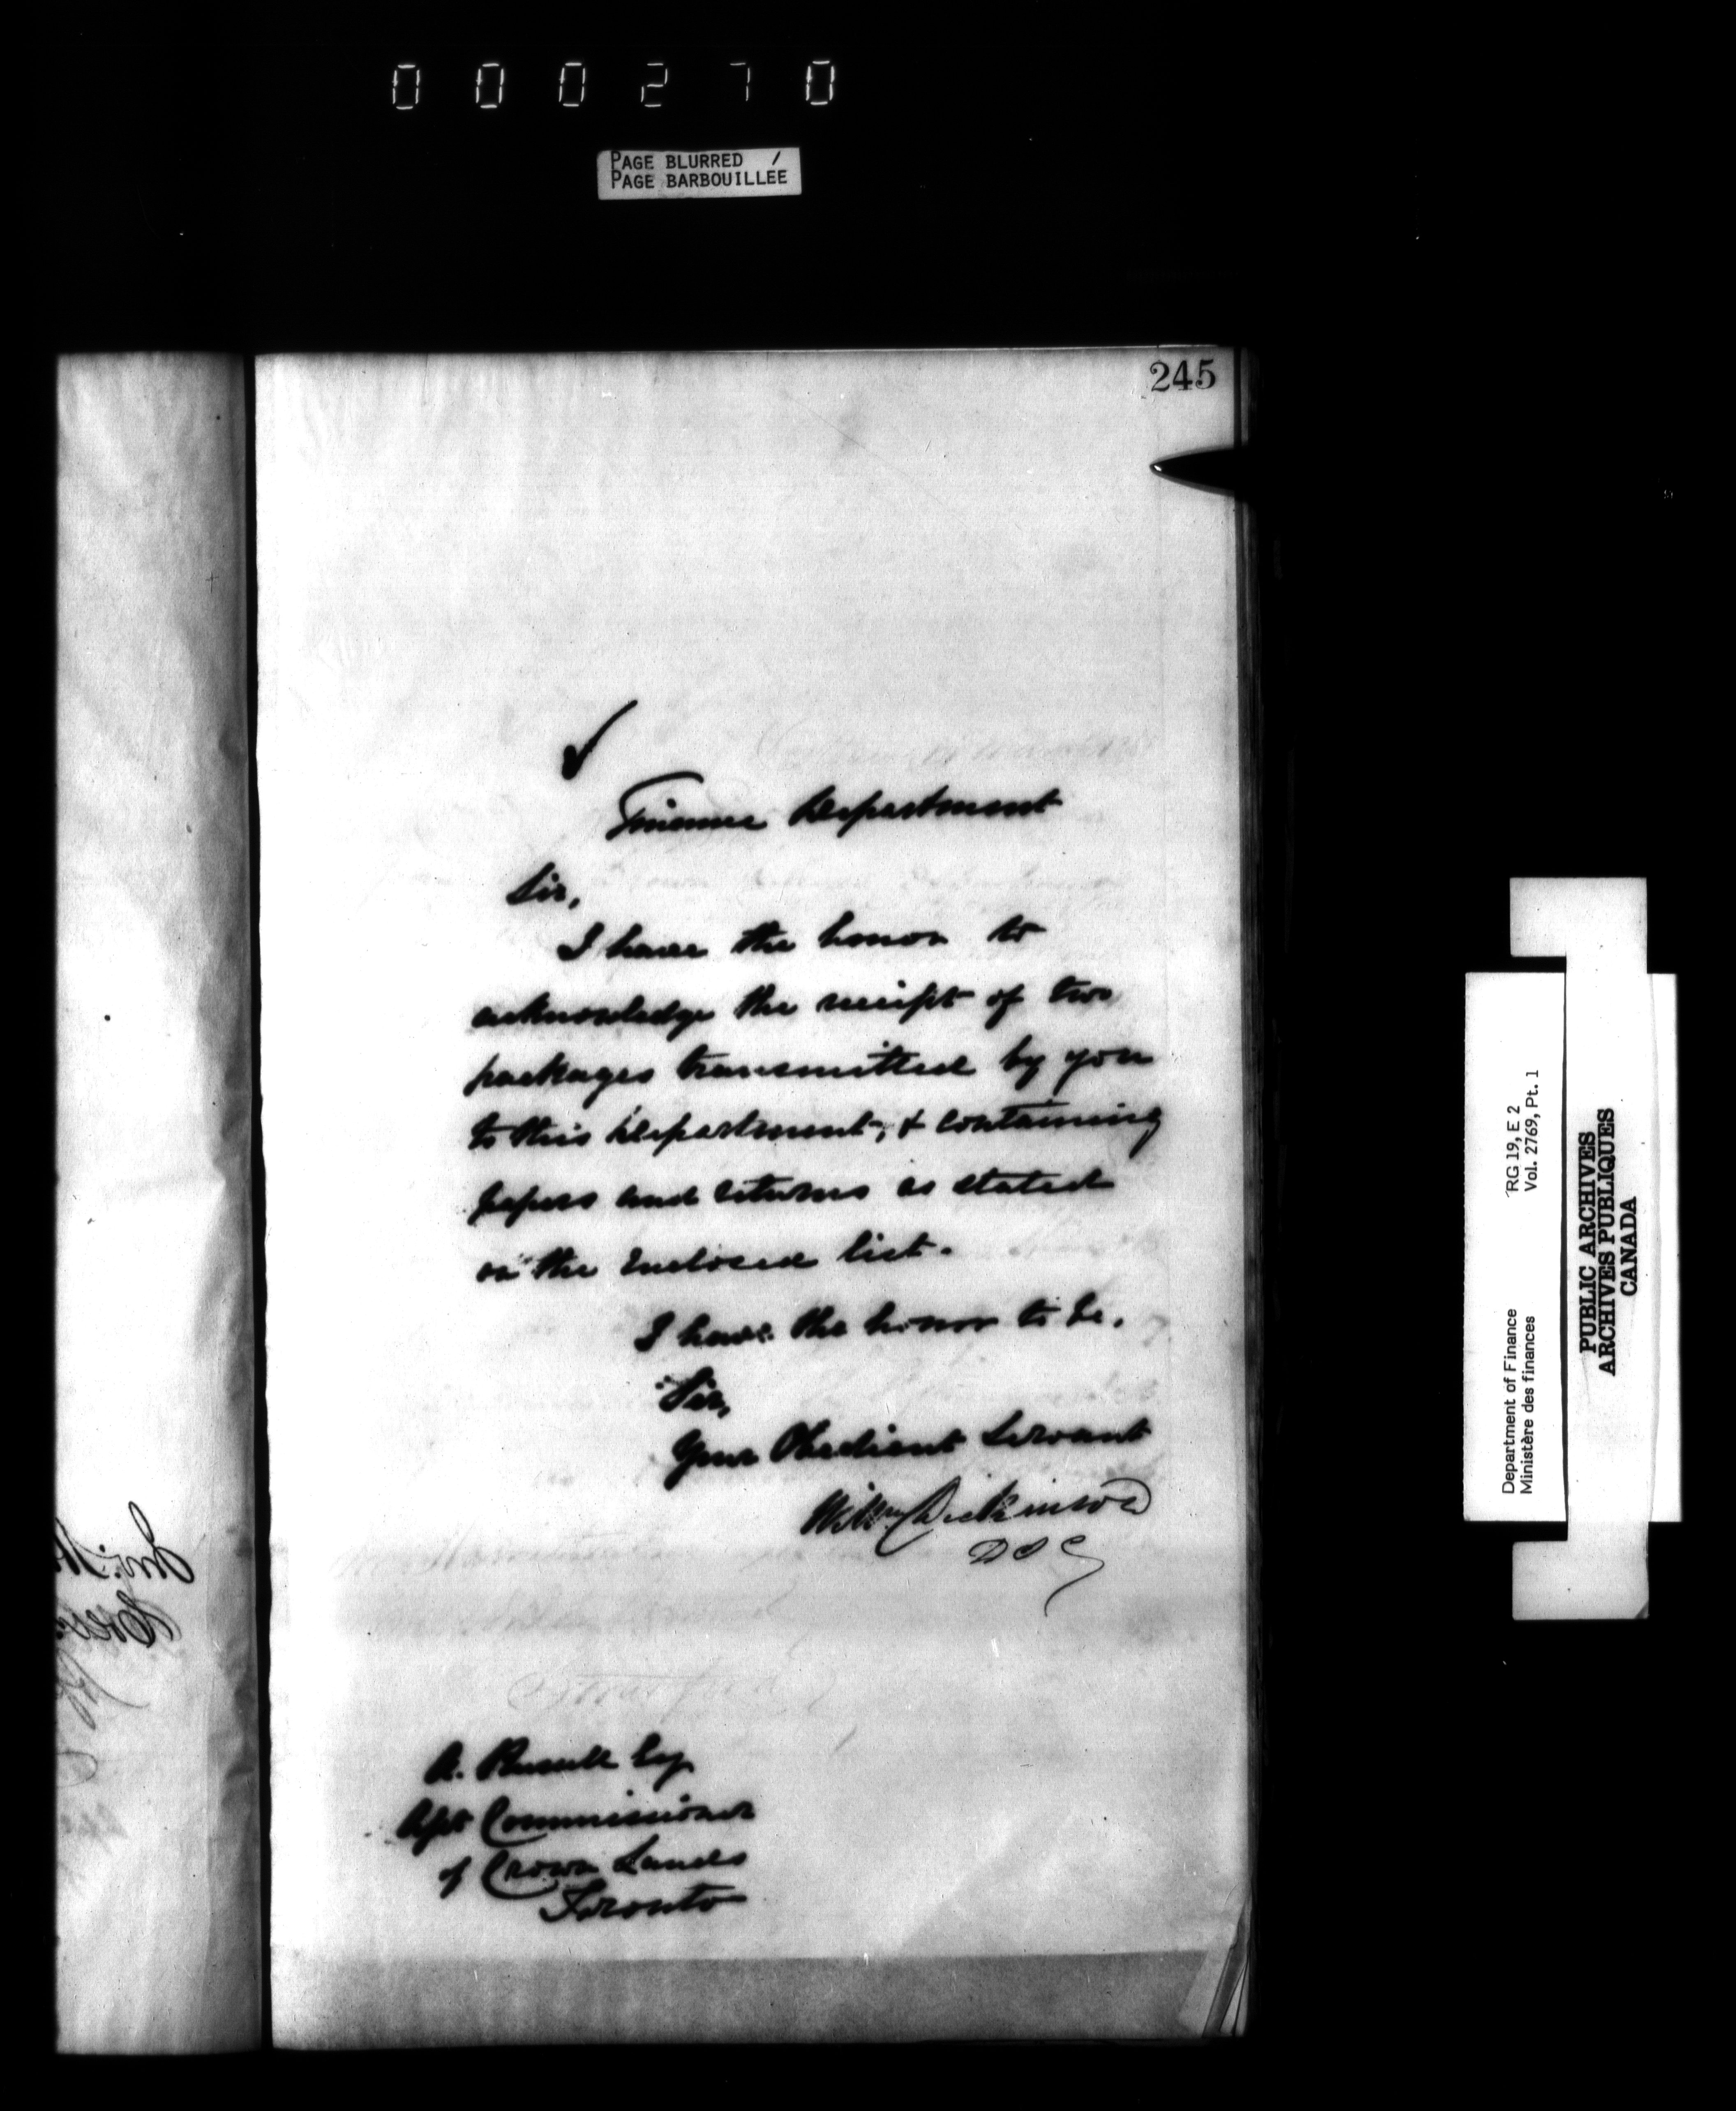 000270
PAGE BLURRED /
PAGE BARBOUILLÉE
245
Finance Department
Sir,
I have the honor to
acknowledge the receipt of two
packages transmitted by you
to this Department, & containing
papers and returns as stated
on the enclosed list.
I have the honor to be,
Sir,
Your Obedient Servant
Willm Dickinson
D I G
A. Russell Esq
Asst Commissioner
of Crown Lands
Toronto
Department of Finance RG 19, E 2
Ministère des finances Vol. 2769, Pt. 1
PUBLIC ARCHIVES
ARCHIVES PUBLIQUES
CANADA